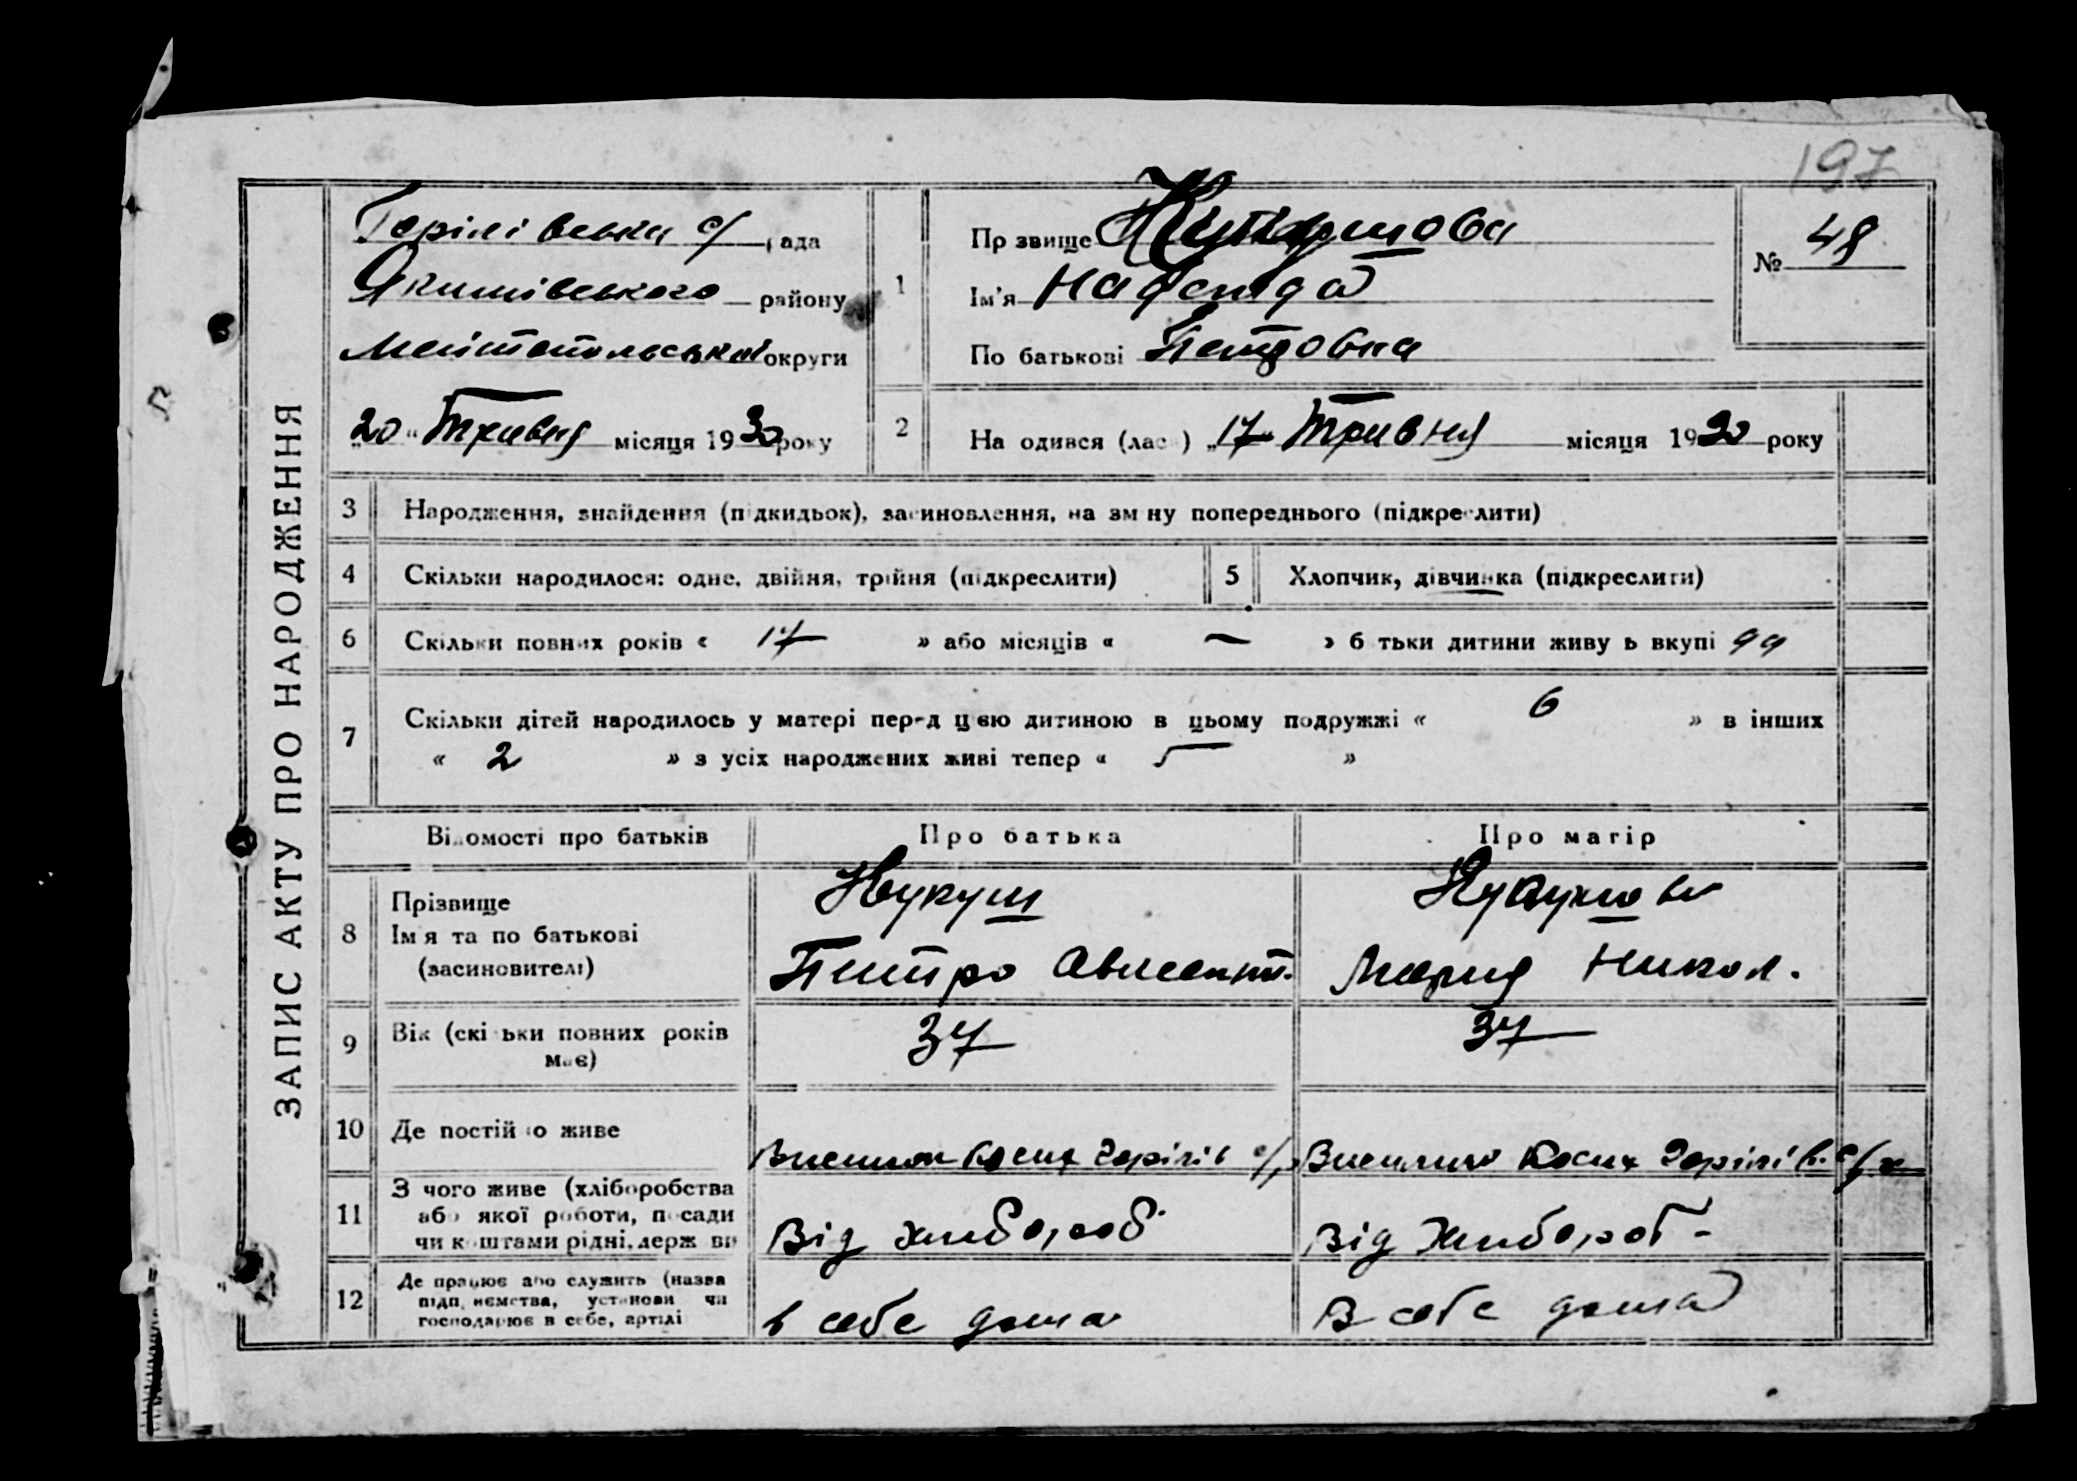 197
ЗАПИС АКТУ ПРО НАРОДЖЕННЯ
Горілівська с/рада
Якимівського району
Мелітопольської округи
„20“ Травня місяця 1930 року
1
Прізвище
Ім'я Надежда
По батькові Петровна
№ 48
2
Народився (лась) „17“ Травня місяця 1930 року
3 Народження, знайдення (підкидьок), засиновлення, на зміну попереднього (підкреслити)
4 Скільки народилося: одне, двійня, трійня (підкреслити)
5 Хлопчик, дівчинка (підкреслити)
6 Скільки повних років « 17 » або місяців « — » батьки дитини живуть вкупі
7 Скільки дітей народилось у матері перед цією дитиною в цьому подружжі « 6 » в інших
« 2 » з усіх народжених живі тепер « 5 »
Відомості про батьків Про батька Про матір
8 Прізвище
Ім'я та по батькові
(засиновителі)
Петро
Мария Никол.
9 Вік (скільки повних років
має)
37
37
10 Де постійно живе
с/р
11 З чого живе (хліборобства
або якої роботи, посади
чи коштами рідні, держави
Від хлібороб
Від хлібороб-
12 Де працює або служить (назва
підприємства, установи чи
господарює в себе, артілі
в себе дома
В себе дома